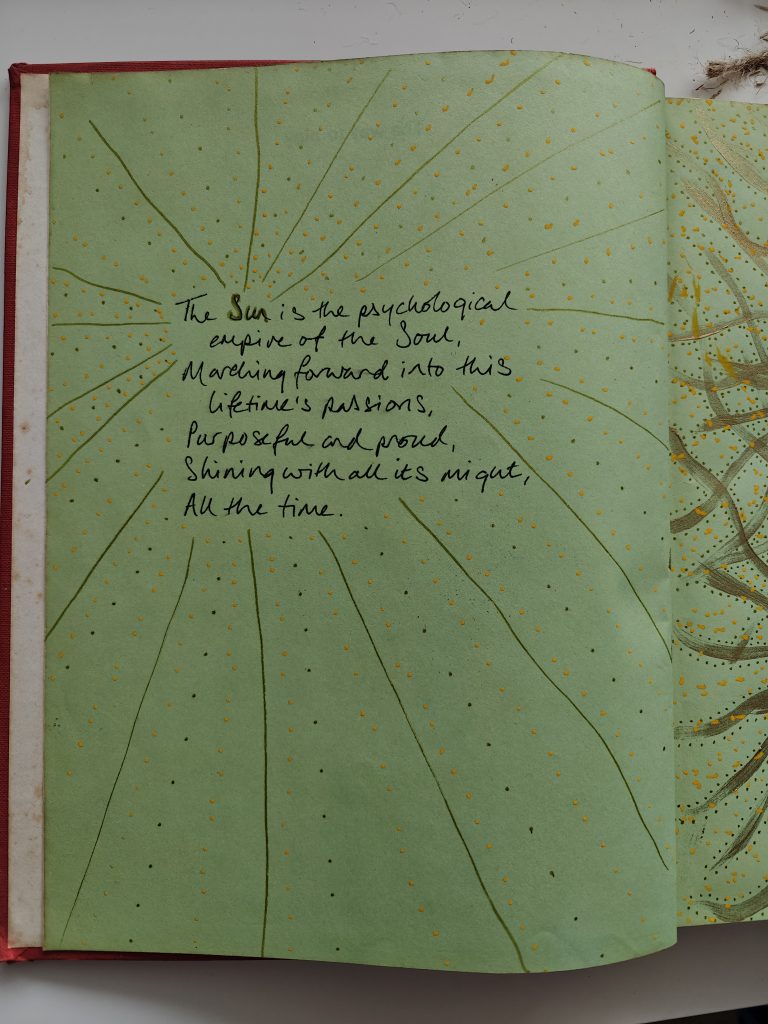 The Sun is the psychological
empire of the Soul,
Marching forward into this
lifetime's passions,
Purposeful and proud,
Shining with all its might,
All the time.